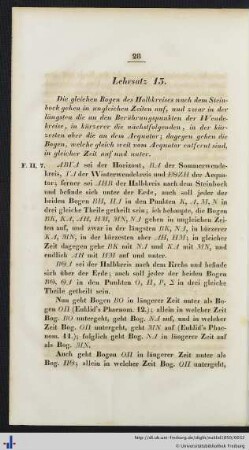 28
Lehrsatz 15.
Die gleichen Bogen des Halbkreises nach dem Stein-
bock gehen in ungleichen Zeiten auf, und zwar in der
längsten die an den Berührungspunkten der Wende-
kreise, in kürzerer die nächstfolgenden, in der kür-
zesten aber die an dem Aequator; dagegen gehen die
Bogen, welche gleich weit vom Aequator entfernt sind,
in gleicher Zeit auf und unter.
F. II. 7. sei der Horizont, der Sommerwende-
kreis, der Winterwendekreis und der Aequa-
tor; ferner sei der Halbkreis nach dem Steinbock
und befinde sich unter der Erde, auch soll jeder der
beiden Bogen in den Punkten
in drei gleiche Theile getheilt sein; ich behaupte, die Bogen
gehen in ungleichen Zei-
ten auf, und zwar in der längsten in kürzerer
in der kürzesten aber in gleicher
Zeit dagegen gehe mit und mit und
endlich mit auf und unter.
sei der Halbkreis nach dem Krebs und befinde
sich über der Erde; auch soll jeder der beiden Bogen
in den Punkten in drei gleiche
Theile getheilt sein.
Nun geht Bogen in längerer Zeit unter als Bo-
gen (Euklid's Phaenom. 12.); allein in welcher Zeit
Bog. untergeht, geht Bog. auf, und in welcher
Zeit Bog. untergeht, geht auf (Euklid's Phae-
nom. 11.); folglich geht Bog. in längerer Zeit auf
als Bog.
Auch geht Bogen in längerer Zeit unter als
Bog. allein in welcher Zeit Bog. untergeht,